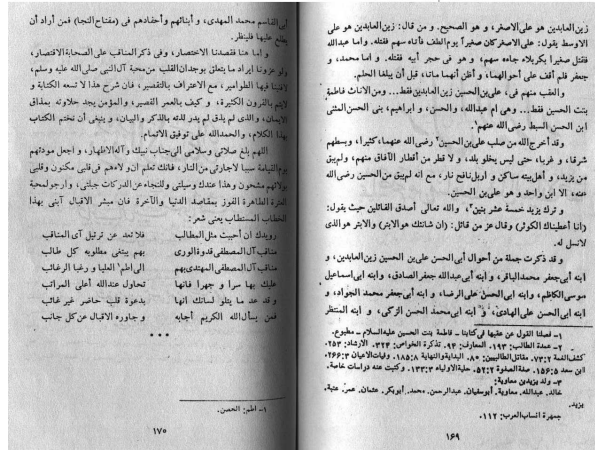 زين العابدين هو على الاصغر، و هو الصحيح. و من قال: زين العابدين هو على
الاوسط يقول: على الاصغر كان صغيراً يوم الطف فأتاه سهم فقتله. و اما عبدالله
فقتل صغيرا بكربلاء جاءه سهم، و هو فى حجر أبيه فقتله. و اما محمد، و
جعفر فلم أقف على أحوالهما، و أظن أنهما ماتا، قبل أن يبلغا الحلم.
و العقب منهم فى، على بن الحسين زين العابدين فقط... و من الاناث فاطمة
بنت الحسين فقط... وهى ام عبدالله، والحسن، و ابراهيم، بنى الحسن المثنى
ابن الحسن السبط رضى الله عنهم
و قد أخرج الله من صلب على بن الحسين رضى الله عنهما، كثيرا، وبسطهم
شرقا، و غربا، حتى ليس يخلو بلد، و لا قطر من أقطار الآفاق منهم، ولم يبق
من يزيد، و أهل بيته ساكن و لا نافخ نار، مع انه لم يبق من الحسين رضى الله
عنه، الا ابن واحد و هو على بن الحسين.
و ترك يزيد خمسة عشر بنين، و الله تعالى أصدق القائلين حيث يقول:
(انا أعطيناك الكوثر) وقال عز من قائل: (ان شانئك هو الابتر) والابتر هو الذى
لانسل له.
و قد ذكرت جملة من أحوال أبى الحسن على بن الحسين زين العابدين، و
ابنه أبى جعفر محمد الباقر، و ابنه أبى عبدالله جعفر الصادق، و ابنه أبى اسماعيل
موسى الكاظم، و ابنه ابى الحسن على الرضا، و ابنه أبى جعفر محمد الجواد، و
ابنه ابى الحسن على الهادى، و ابنه ابى محمد الحسن الزكى، و ابنه المنتظر
١- فصلنا القول عن عقبها فى كتابنا - فاطمة بنت الحسين عليه السلام - مطبوع.
٢- عمدة الطالب: ١٩٣. المعارف: ٩٤. تذكرة الخواص: ٣٢٤. الارشاد: ٢٥٣.
كشف الغمة ٢:٧٣. مقاتل الطالبيين: ٨٠. البداية والنهاية ٨:١٨٥. وفيات الاعيان ٣:٢٦٦.
ابن سعد ٥:١٥٦. صفة الصفوة ٢:٥٢. حلية الاولياء ٣:١٣٣. وكتبت عنه دراسات خاصة.
٣- ولد يزيد بن معاوية:
خالد. عبدالله. معاوية. أبوسفيان. عبدالرحمن. محمد. أبوبكر. عثمان. عمر. عتبة.
يزيد.
جمهرة انساب العرب: ١١٢.
١٦٩
أبى القاسم محمد المهدى، و أبنائهم وأحفادهم فى (مفتاح النجا) فمن أراد أن
يطلع عليها فلينظر.
و اما هنا فقصدنا الاختصار، وفى ذكر المناقب على الصحابة الاقتصار،
ولو عزونا ايراد ما يتعلق بوجدان القلب من محبة آل النبى صلى الله عليه وسلم،
لافنينا فيها الطوامير، مع الاعتراف بالتقصير، فان شرح هذا لا تسعه الكتابة و
لايتم بالقرون الكثيرة، و كيف بالعمر القصير، والمؤمن يجد حلاوته بمذاق
الايمان، والذى لم يذق لم يدر لذته بالذكر والبيان، و ينبغى أن نختم الكتاب
بهذا الكلام، و الحمد الله على توفيق الاتمام.
اللهم بلغ صلاتى وسلامى الى جناب نبيك و آله الاطهار، و اجعل مودتهم
يوم القيامة سببا لاجارتى من النار، فانك تعلم ان ولاءهم فى قلبى مكنون وقلبى
بولائهم مشحون وهذا عندك وسيلتى وللنجاة عن الدركات جبلتى، وارجو لمحبة
العترة الطاهرة الفوز بمقاصد الدنيا والآخرة فان مبشر الاقبال آتى بهذا
الخطاب المستطاب يعنى شعر:
رويدك ان أحببت مثل المطالب فلا تعد عن ترتيل آى المناقب
مناقب آل المصطفى قدوة الورى بهم يبتغى مطلوبه كل طالب
مناقب آل المصطفى المهتدى بهم الى اطم العليا و رغبا الرغائب
عليك بها سرا و جهرا فانها تحاول عند الله أعلى المراتب
و قد عد ما يتلو لسانك انها بدعوة قلب حاضر غير غائب
فمن يسأل الله الكريم أجابه و جاوره الاقبال عن كل جانب
* * *
١- اطم: الحصن.
١٧٠